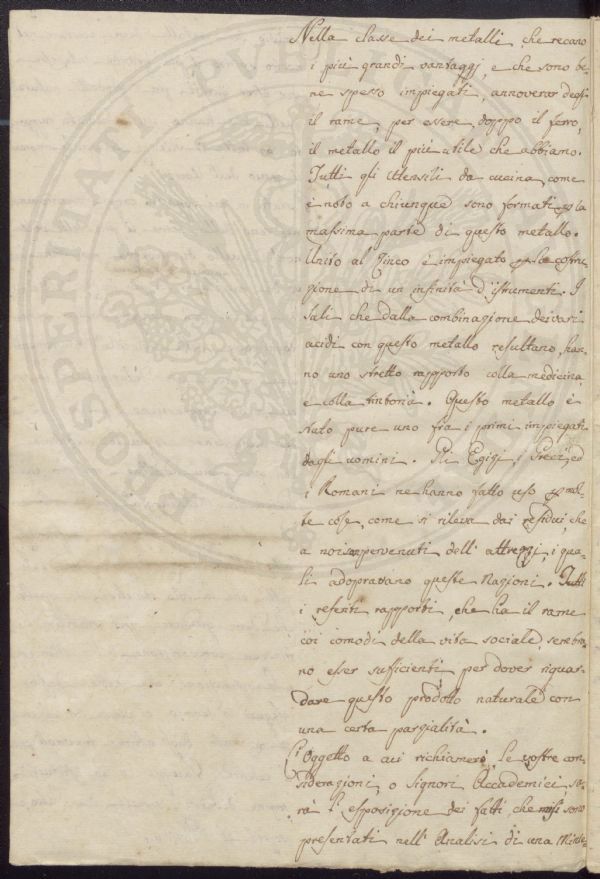 Nella classe dei metalli, che recano
i più grandi vantaggj, e che sono be-
ne spesso impiegati, annoverar dessi
il rame, per essere, doppo il ferro,
il metallo il più utile che abbiamo.
Tutti gli Utensili da cucina, come
è noto a chiunque sono formati, p la
massima parte di questo metallo.
Unito al Zinco è impiegato p la costru-
zione di un infinità d'istrumenti. I
sali che dalla combinazione dei vari
acidi con questo metallo resultano, han-
no uno stretto rapporto colla medicina,
e colla tintoria. Questo metallo è
stato pure uno fra i primi impiegati
dagli uomini. Gli Egizi, i Greci, ed
i Romani ne hanno fatto uso p mol-
te cose, come si rileva dai residui, che
a noi pervenuti dell' attrezzi, i qua-
li adopravano queste Nazioni. Tutti
i referiti rapporti, che ha il rame
coi comodi della vita sociale, sembra-
no esser sufficienti per dover riguar-
dare questo prodotto naturale con
una certa parzialità.
L'Oggetto a cui richiamerò le vostre con-
siderazioni, o Signori Accademici, sa-
rà l'esposizione dei fatti che mi si sono
presentati nell' Analisi di una Mine-
PROSPERITATI PVBLICAE